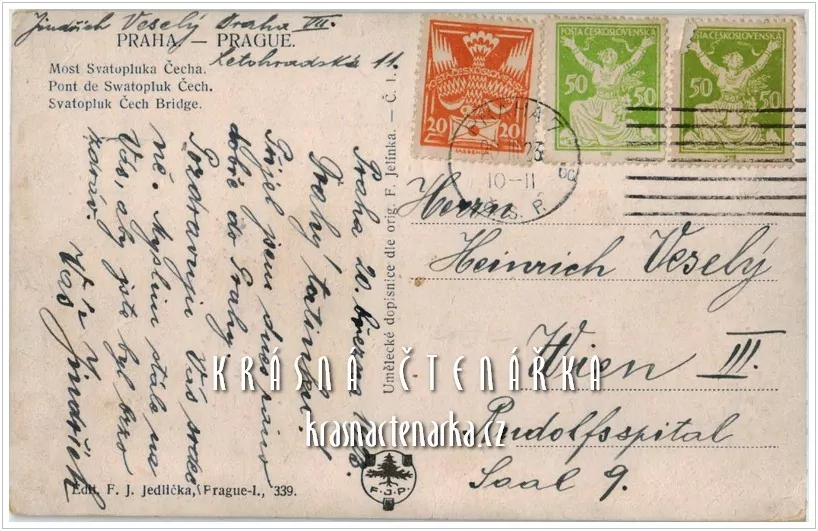 Jindřich Veselý Praha VII.
PRAHA. — PRAGUE.
Letohradská 11.
Most Svatopluka Čecha.
Pont de Swatopluk Čech.
Svatopluk Čech Bridge.
POŠTA ČESKOSLOVENSKÁ
20 20
POŠTA ČESKOSLOVENSKÁ
50 50
POŠTA ČESKOSLOVENSKÁ
50 50
PRAHA 7
23
10-11
Č.S.P.
Praha 20. března 1923.
Drahý tatínku!
Přijel jsem dnes ráno
dobře do Prahy.
Pozdravuji Vás srdeč
ně. Myslím stále na
Vás, aby jste byl brzo
zdráv.
Váš Jindřich
Umělecké dopisnice dle orig. F. Jelínka. — Č. 1.
Herrn
Heinrich Veselý
Wien III.
Rudolfsspital
Saal 9.
KRÁSNÁ ČTENÁŘKA
krasnactenarka.cz
F.J.P.
Edit. F. J. Jedlička, Prague-I., 339.